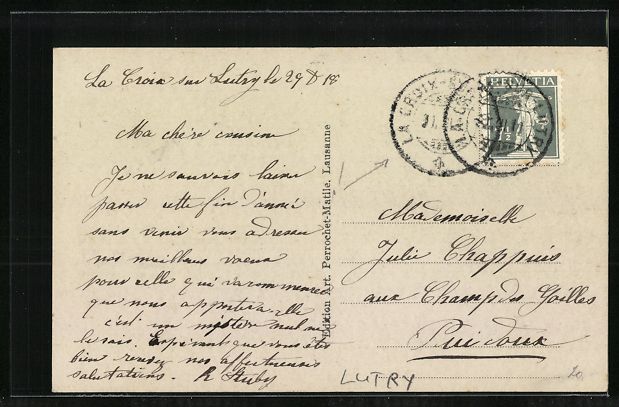 La Croix sur Lutry le 29 D 18
Ma chère cousine
Je ne saurais laisser
passer cette fin d'année
sans venir vous adresser
nos meilleurs vœux
pour celle qui va commencer
que nous apportera-elle
c'est un mystère nul ne
le sais. Espérant que vous êtes
bien recevez nos affectueuses
salutations. R
Edition Art. Perrochet-Matile, Lausanne
LA CROIX
31
HELVETIA
7½
LUTRY
Mademoiselle
Julie Chappuis
aux Champs des Goilles
Puidoux
LUTRY